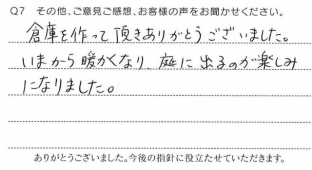 Q7 その他、ご意見ご感想、お客様の声をお聞かせください。
倉庫を作って頂きありがとうございました。
いまから暖かくなり、庭に出るのが楽しみ
になりました。
ありがとうございました。今後の指針に役立たせていただきます。